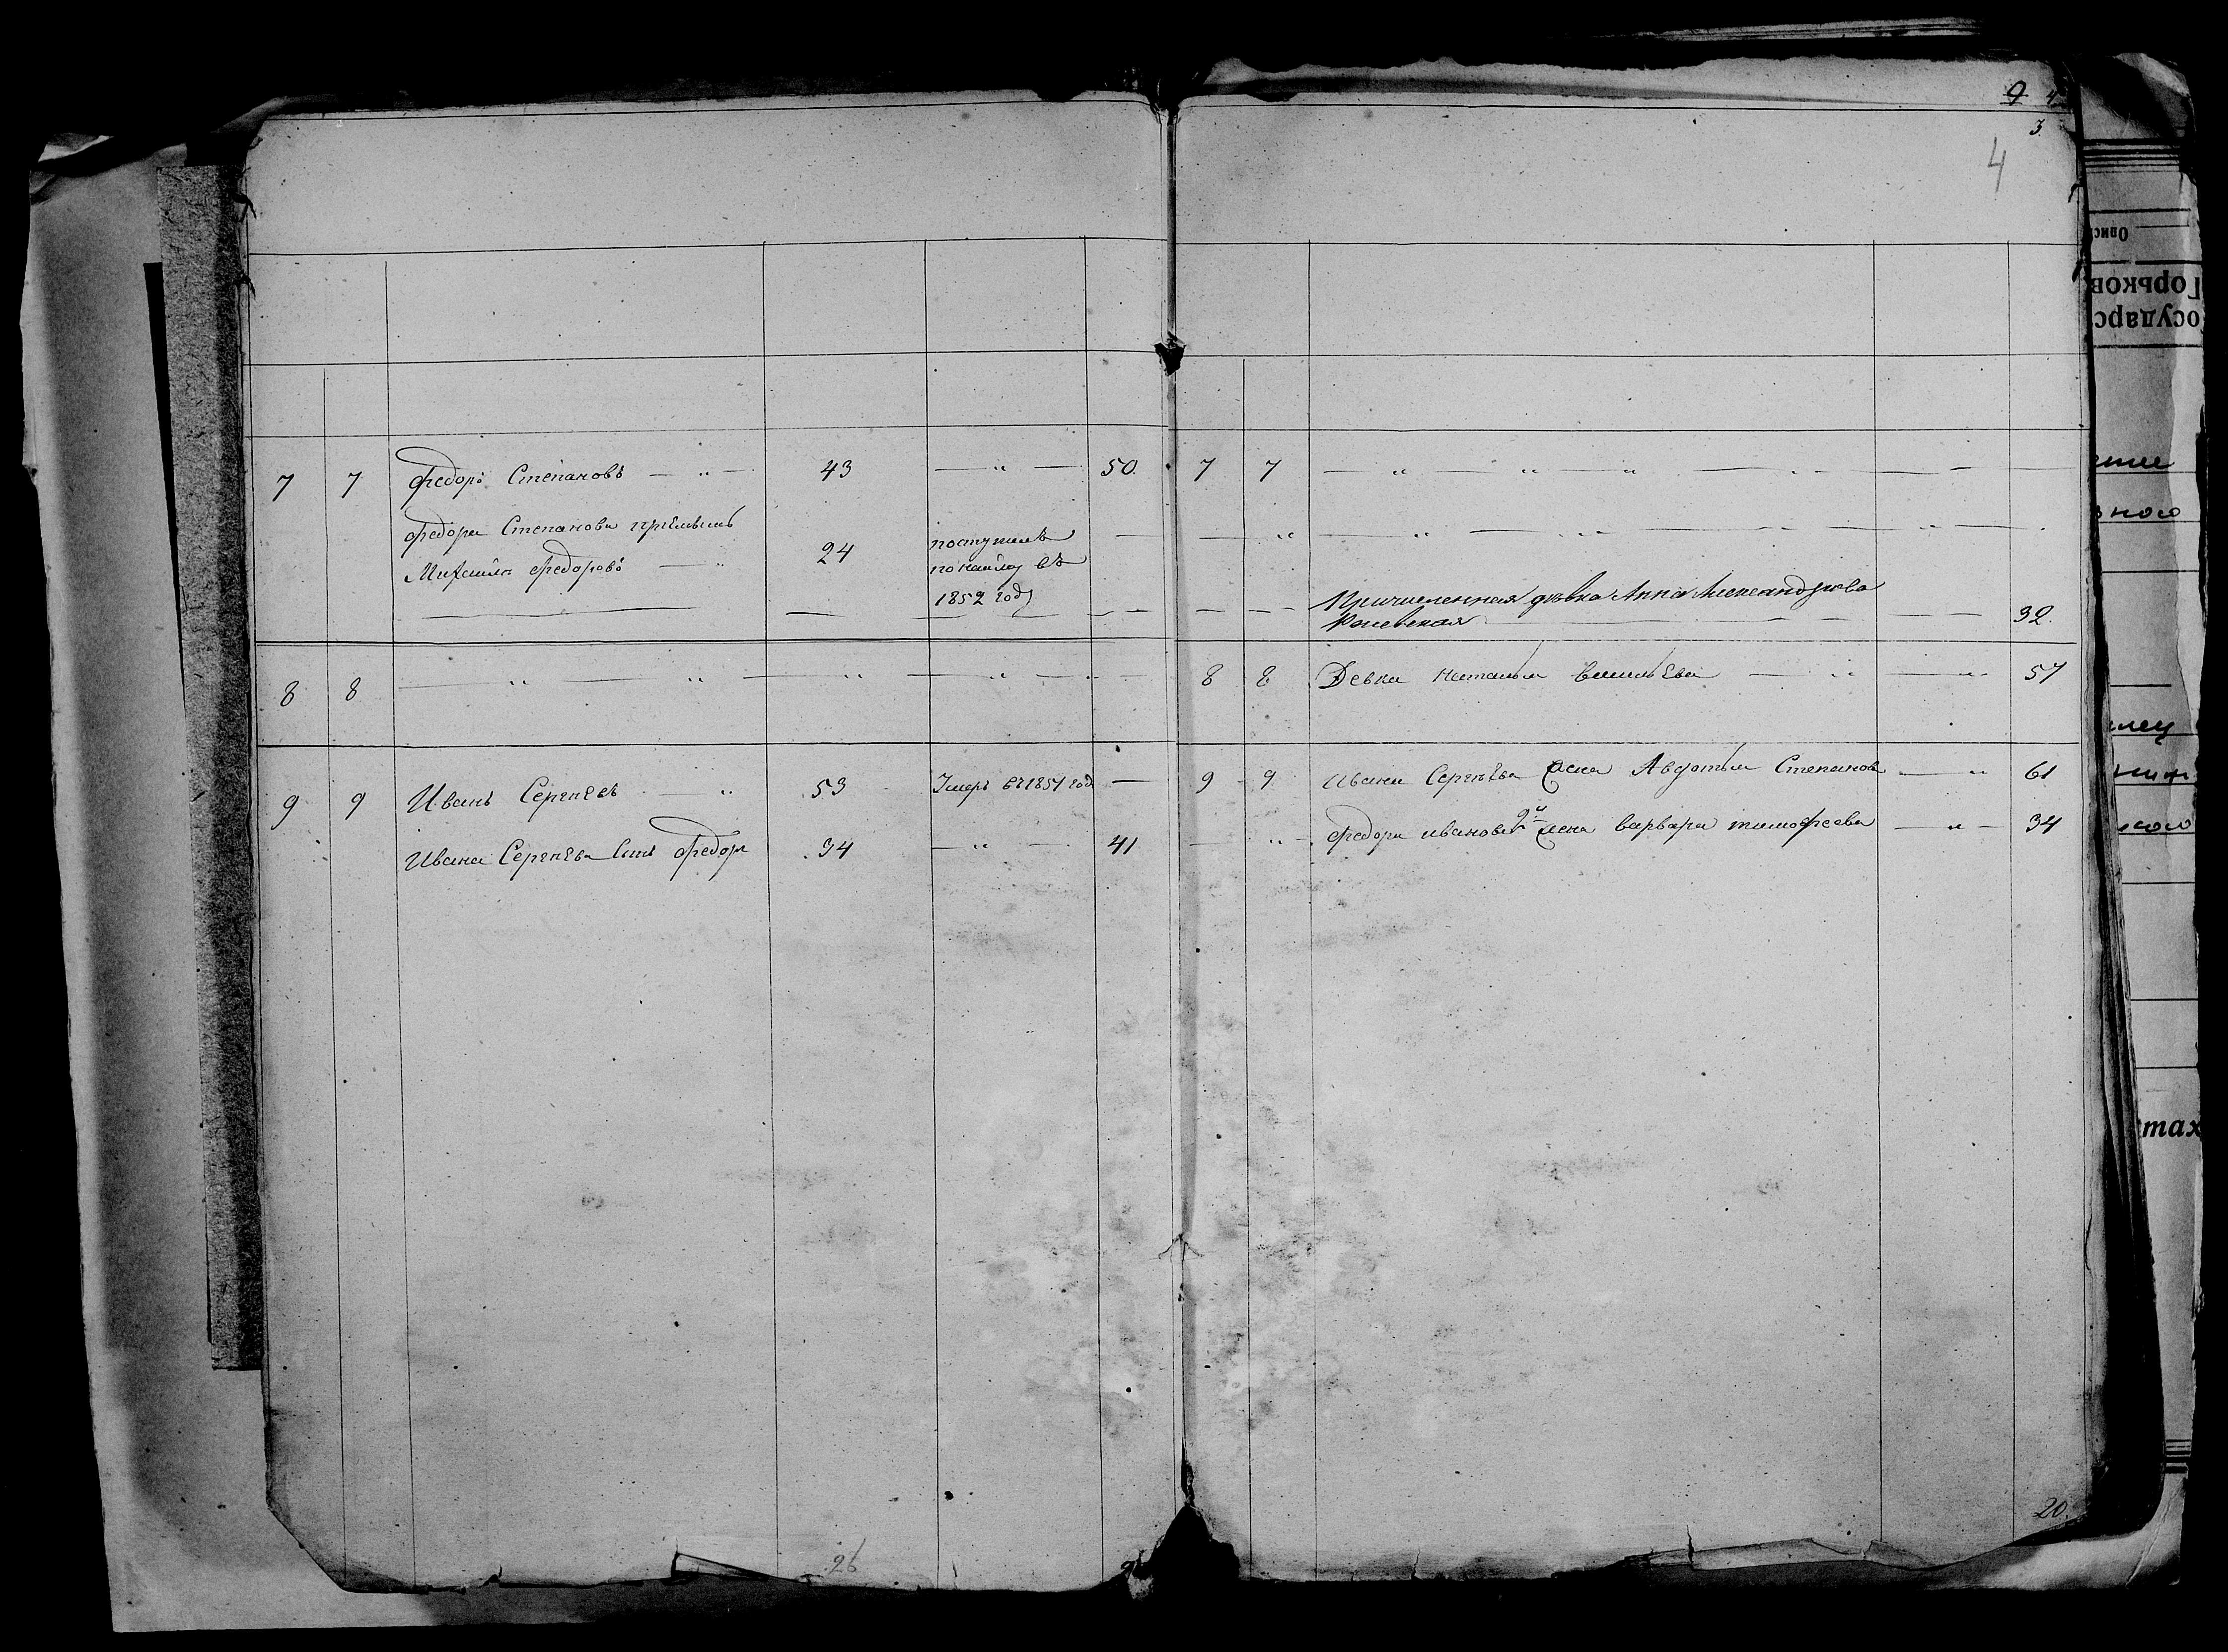 9 4
3.
4
7 7 Федоръ Степановъ — " — 43 — " — 50.
Федора Степанова приемышъ
Михаилъ Федоровъ — " 24 поступилъ
по найму въ
1852 году
8 8 — " — " — " — " —
9 9 Иванъ Сергѣевъ — " 53 Умеръ въ 1851 году —
Ивана Сергѣева сынъ Федоръ 34 — " — 41
26
7 7 — " — " — " — " —
— " — " — " — " — " —
Причисленная дѣвка Анна Александрова
32.
8 8 Девка Наталья Васильева — " — " 57
9 9 Ивана Сергѣева жена Авдотья Степанова — " 61
— " — Федора Иванова 2я жена Варвара Тимофеева — " — 34
20.
Опис
Горьков
осударс
ного
тах